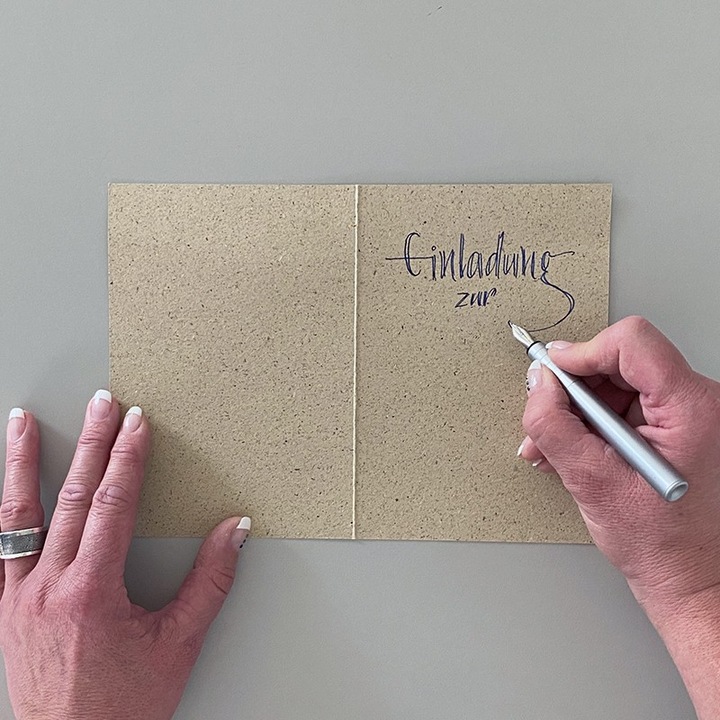 Einladung
zur